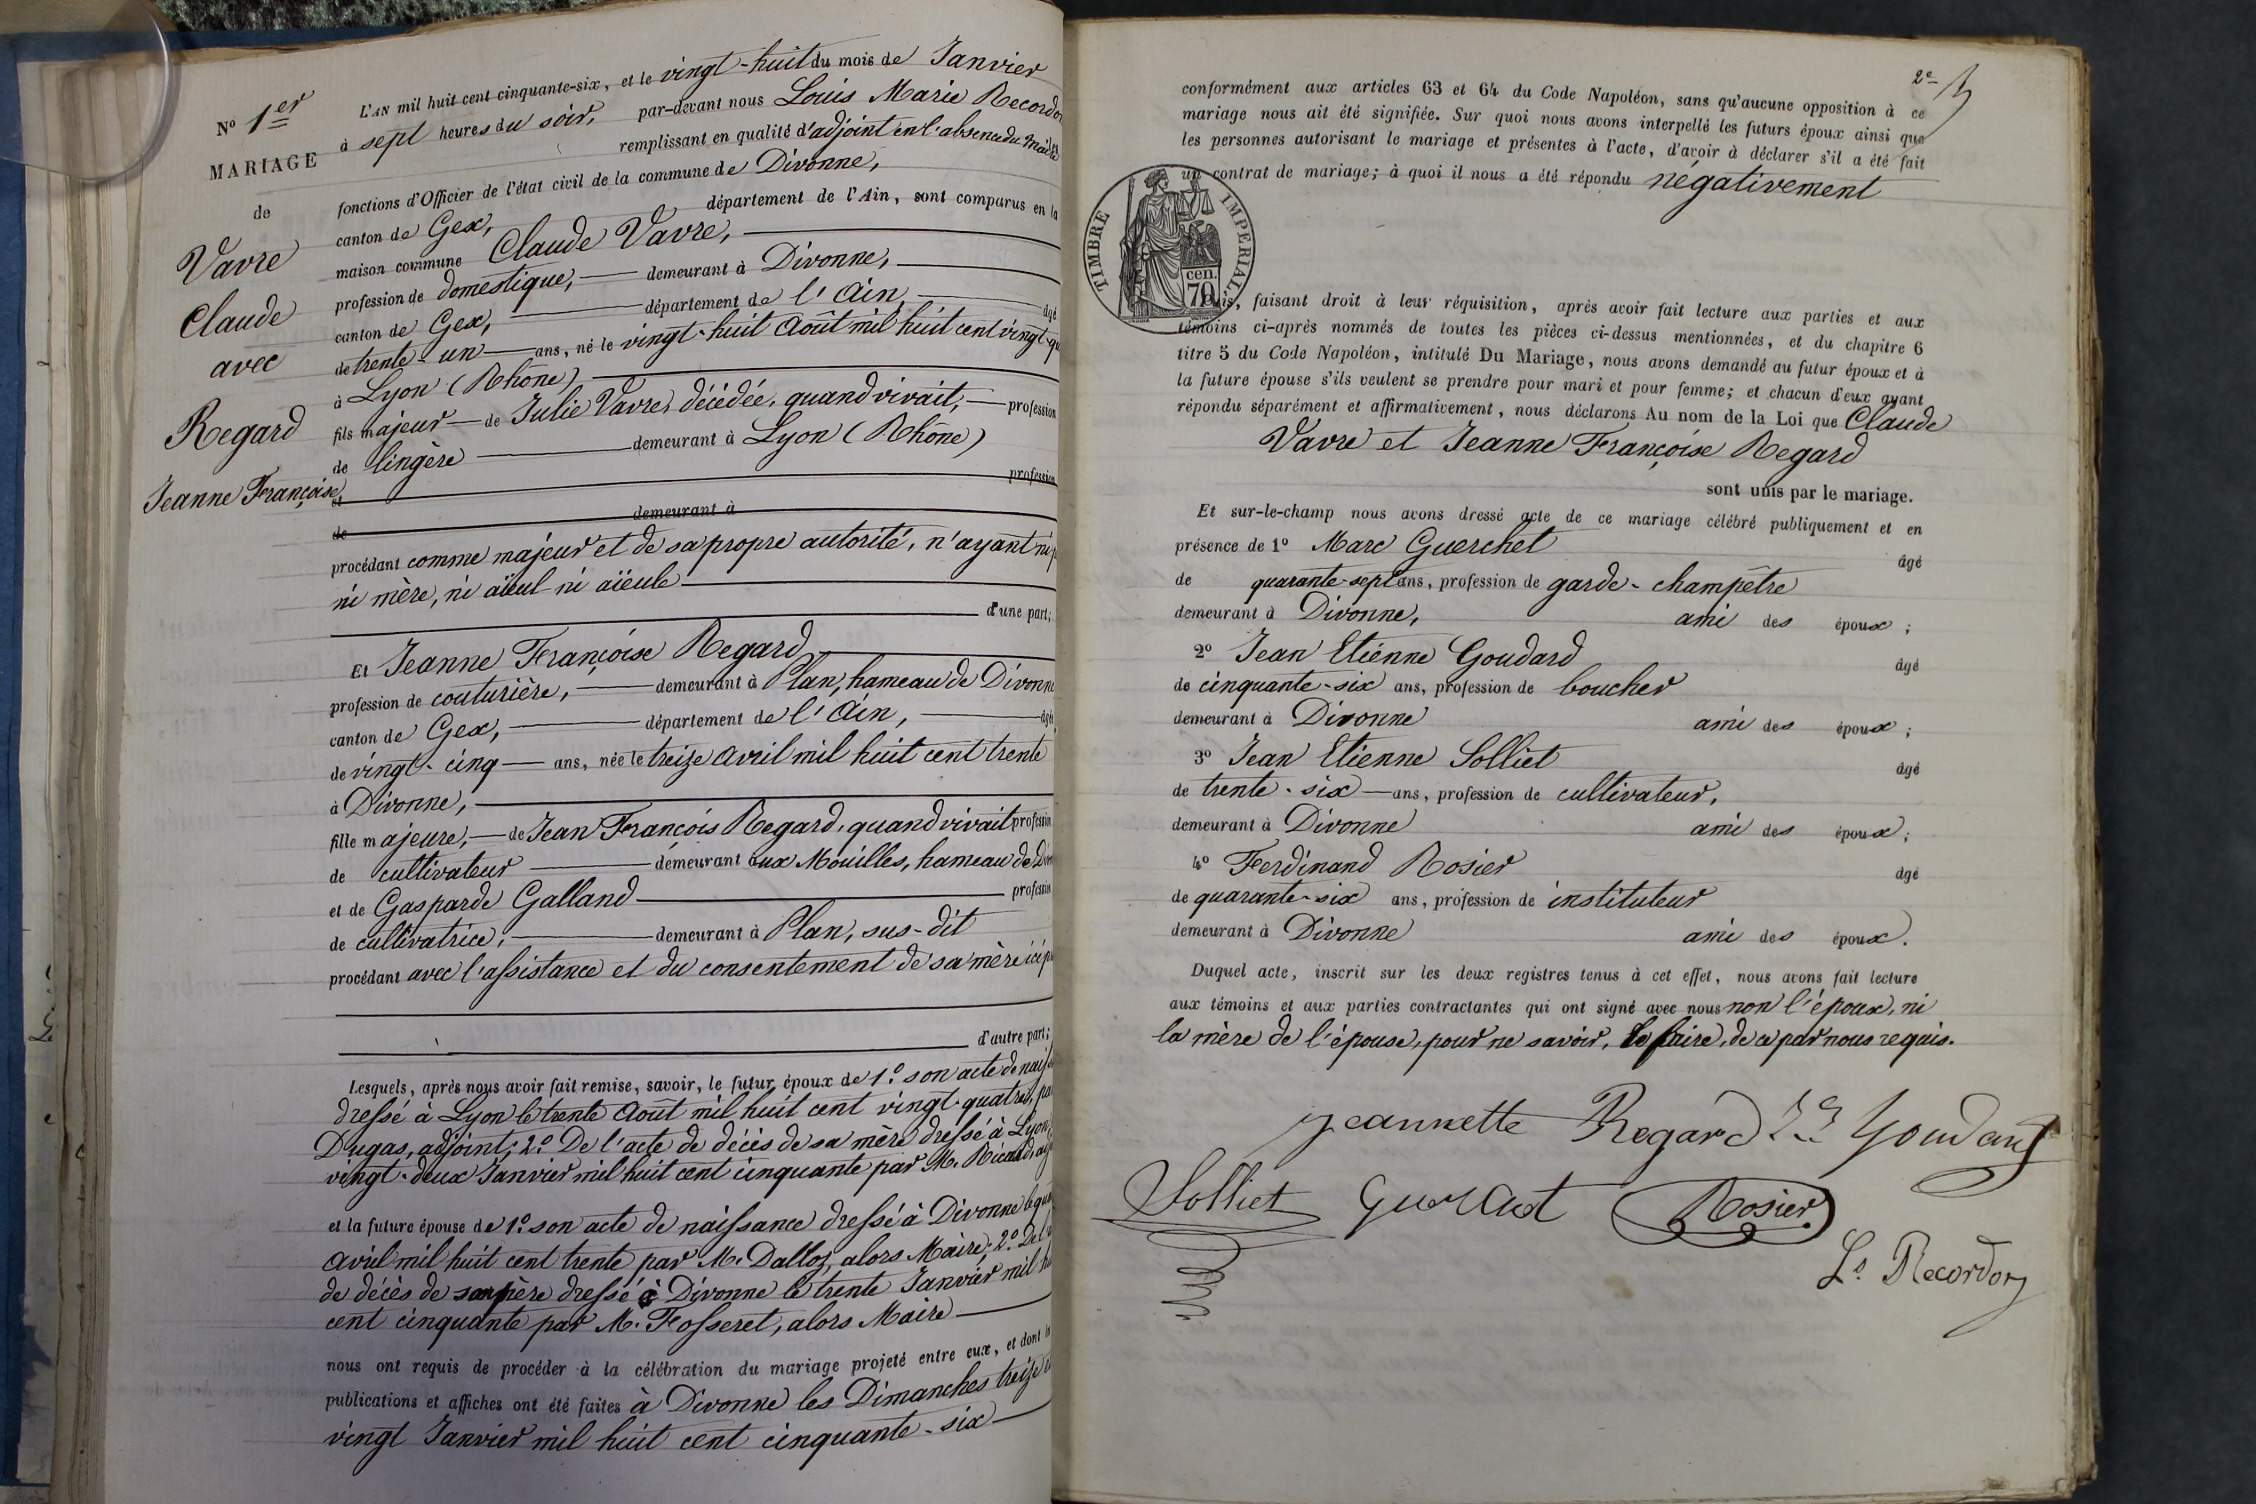 N° 1er
MARIAGE
de
Vavre
Claude
avec
Regard
Jeanne Françoise
L'AN mil huit cent cinquante-six, et le vingt-huit du mois de Janvier
à sept heures du soir, par-devant nous Louis Marie Recordon
remplissant en qualité d'adjoint en l'absence du Maire
fonctions d'Officier de l'état civil de la commune de Divonne,
canton de Gex, département de l'Ain, sont comparus en la
maison commune Claude Vavre,
profession de domestique, demeurant à Divonne,
canton de Gex, département de l'Ain, âgé
de trente-un ans, né le vingt-huit Août mil huit cent vingt-qu
à Lyon (Rhône)
fils majeur de Julie Vavre, décédée, quand vivait, profession
de lingère demeurant à Lyon (Rhône)
et profession
de demeurant à
procédant comme majeur et de sa propre autorité, n'ayant ni p
ni mère, ni aïeul ni aïeule
d'une part;
Et Jeanne Françoise Regard
profession de couturière, demeurant à Plan, hameau de Divonne
canton de Gex, département de l'Ain, âgée
de vingt-cinq ans, née le treize avril mil huit cent trente
à Divonne,
fille majeure, de Jean François Regard, quand vivait profession
de cultivateur demeurant aux Mouilles, hameau de Divo
et de Gasparde Galland profession
de cultivatrice, demeurant à Plan, sus-dit
procédant avec l'assistance et du consentement de sa mère ici p
d'autre part;
Lesquels, après nous avoir fait remise, savoir, le futur époux de 1.° son acte de naiss
dressé à Lyon le trente Août mil huit cent vingt-quatre, pa
Dugas, adjoint; 2.° De l'acte de décès de sa mère dressé à Lyon
vingt-deux Janvier mil huit cent cinquante par M. Ricard, adj
et la future épouse de 1.° son acte de naissance dressé à Divonne le qu
avril mil huit cent trente par M. Dalloz, alors Maire; 2.° De l'a
de décès de son père dressé à Divonne le trente Janvier mil hu
cent cinquante par M. Fosseret, alors Maire
nous ont requis de procéder à la célébration du mariage projeté entre eux, et dont les
publications et affiches ont été faites à Divonne les Dimanches treize et
vingt Janvier mil huit cent cinquante-six
2e
conformément aux articles 63 et 64 du Code Napoléon, sans qu'aucune opposition à ce
mariage nous ait été signifiée. Sur quoi nous avons interpellé les futurs époux ainsi que
les personnes autorisant le mariage et présentes à l'acte, d'avoir à déclarer s'il a été fait
un contrat de mariage; à quoi il nous a été répondu négativement
TIMBRE IMPERIAL
70 cen.
Puis, faisant droit à leur réquisition, après avoir fait lecture aux parties et aux
témoins ci-après nommés de toutes les pièces ci-dessus mentionnées, et du chapitre 6
titre 5 du Code Napoléon, intitulé Du Mariage, nous avons demandé au futur époux et à
la future épouse s'ils veulent se prendre pour mari et pour femme; et chacun d'eux ayant
répondu séparément et affirmativement, nous déclarons Au nom de la Loi que Claude
Vavre et Jeanne Françoise Regard
sont unis par le mariage.
Et sur-le-champ nous avons dressé acte de ce mariage célébré publiquement et en
présence de 1° Marc Guerchet âgé
de quarante-sept ans, profession de garde-champêtre
demeurant à Divonne, ami des époux;
2° Jean Etienne Goudard âgé
de cinquante-six ans, profession de boucher
demeurant à Divonne ami des époux;
3° Jean Etienne Solliet âgé
de trente-six ans, profession de cultivateur,
demeurant à Divonne ami des époux;
4° Ferdinand Rosier âgé
de quarante-six ans, profession de instituteur
demeurant à Divonne ami des époux.
Duquel acte, inscrit sur les deux registres tenus à cet effet, nous avons fait lecture
aux témoins et aux parties contractantes qui ont signé avec nous non l'époux, ni
la mère de l'épouse, pour ne savoir, le faire, de ce par nous requis.
Jeannette Regard Goudard
Solliet Guerchet Rosier
Ls Recordon